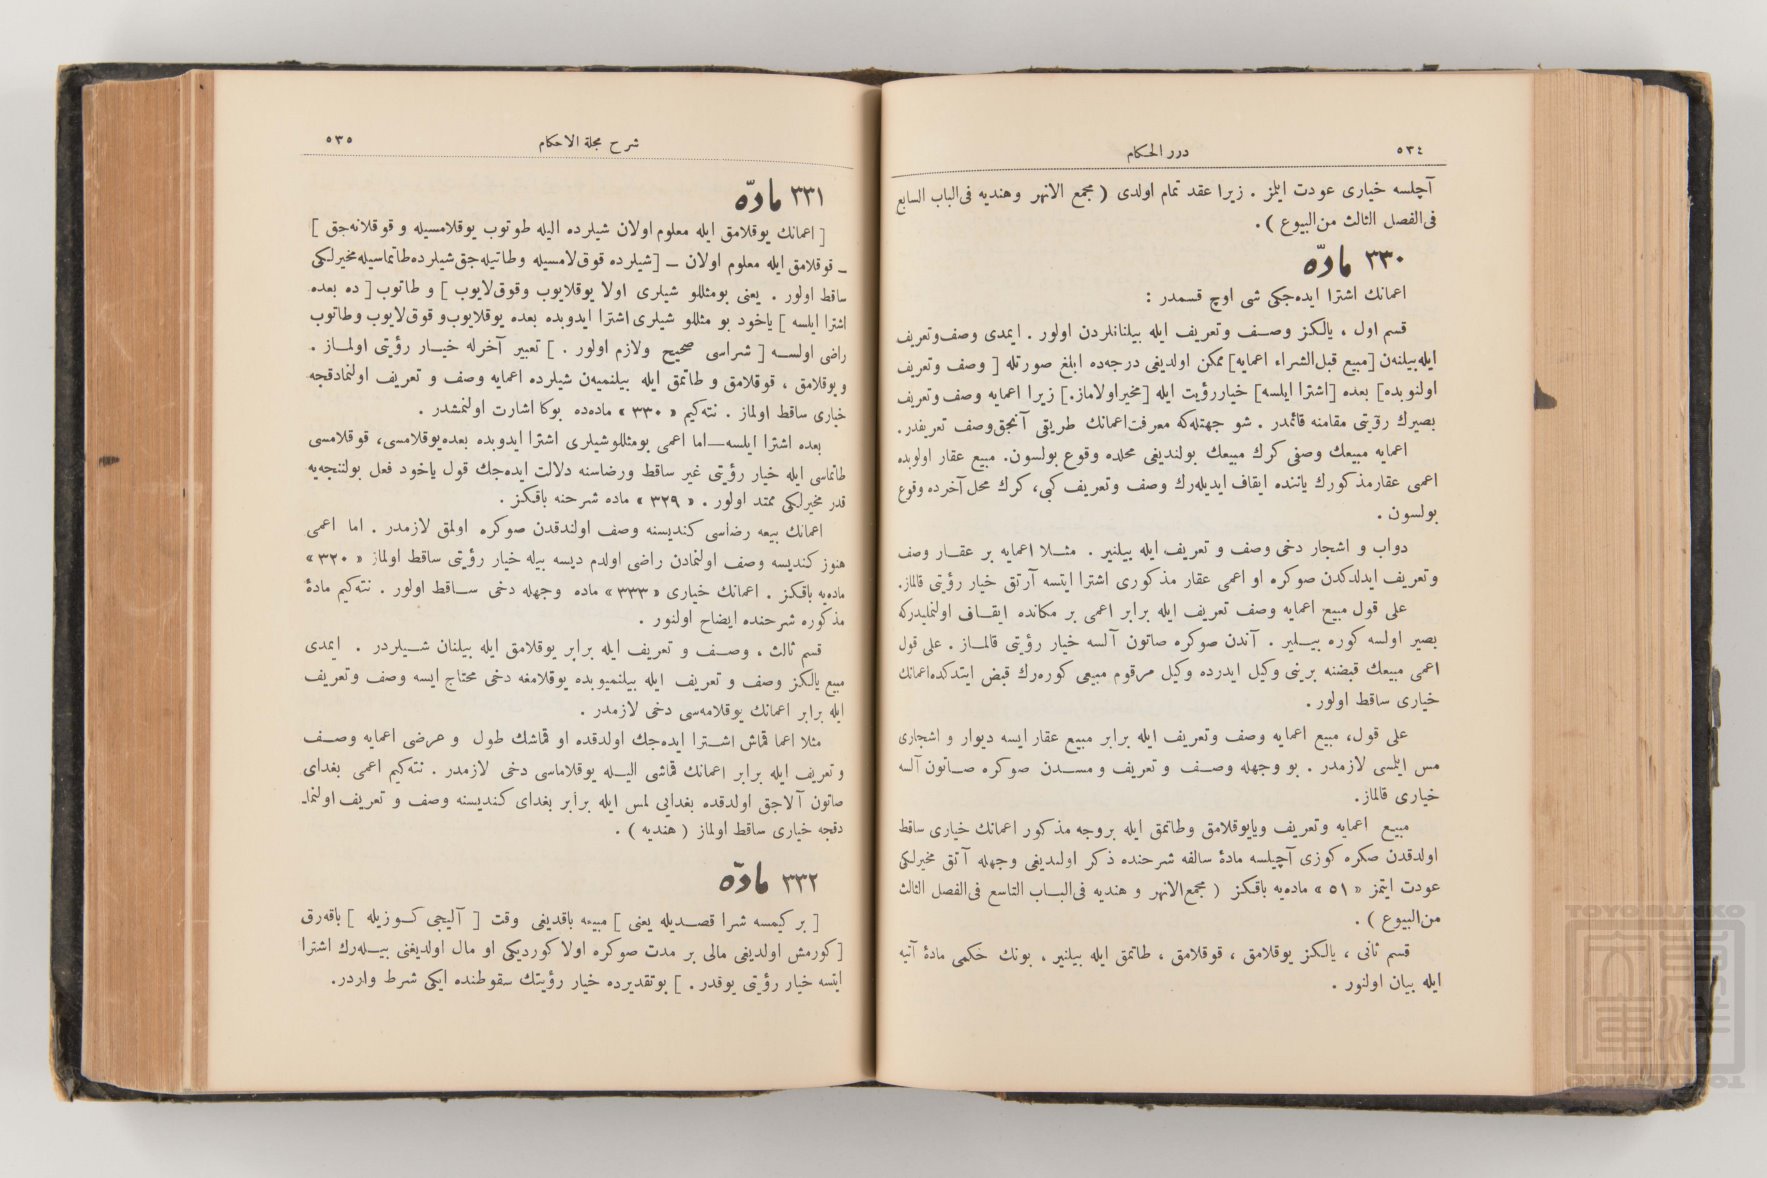 ٥٣٤
درر الحكام
آچلسه خياری عودت ايلز . زيرا عقد تمام اولدی ( مجمع الانهر وهنديه فی‌الباب السابع
فی‌الفصل الثالث من‌البيوع ) .
٣٣٠ مادّه
اعمانك اشترا ايده‌جكی شی اوچ قسمدر :
قسم اول ، يالكز وصف وتعريف ايله بيلنانلردن اولور . ايمدی وصف‌وتعريف
ايله‌بيلنه‌ن [مبيع قبل‌الشراء اعمايه] ممكن اولديغی درجه‌ده ابلغ صورتله [ وصف وتعريف
اولنوبده] بعده [اشترا ايلسه] خياررؤيت ايله [مخيراولاماز.] زيرا اعمايه وصف‌وتعريف
بصيرك رؤيتی مقامنه قائمدر . شو جهتله‌كه معرفت‌اعمانك طريقی آنجق‌وصف تعريفدر.
اعمايه مبيعك وصفی كرك مبيعك بولنديغی محلده وقوع بولسون. مبيع عقار اولوبده
اعمی عقارمذكورك ياننده ايقاف ايديله‌رك وصف وتعريف كبی، كرك محل آخرده وقوع
بولسون .
دواب و اشجار دخی وصف و تعريف ايله بيلنير . مثلا اعمايه بر عقار وصف
وتعريف ايدلدكدن صوكره او اعمی عقار مذكوری اشترا ايتسه آرتق خيار رؤيتی قالماز.
علی قول مبيع اعمايه وصف تعريف ايله برابر اعمی بر مكانده ايقاف اولنمليدركه
بصير اولسه كوره بيلير . آندن صوكره صاتون آلسه خيار رؤيتی قالماز . علی قول
اعمی مبيعك قبضنه برينی وكيل ايدرده وكيل مرقوم مبيعی كوره‌رك قبض ايتدكده‌اعمانك
خياری ساقط اولور .
علی قول، مبيع اعمايه وصف وتعريف ايله برابر مبيع عقار ايسه ديوار و اشجاری
مس ايلمسی لازمدر . بو وجهله وصف و تعريف ومسدن صوكره صاتون آلسه
خياری قالماز.
مبيع اعمايه وتعريف ويايوقلامق وطاتمق ايله بروجه مذكور اعمانك خياری ساقط
اولدقدن صكره كوزی آچيلسه مادۀ سالفه شرحنده ذكر اولنديغی وجهله آتق مخيرلكی
عودت ايتمز « ٥١ » ماده‌يه باقكز ( مجمع‌الانهر و هنديه فی‌الباب التاسع فی‌الفصل الثالث
من‌البيوع ) .
قسم ثانی ، يالكز يوقلامق ، قوقلامق ، طاتمق ايله بيلنير . بونك حكمی مادۀ آتيه
ايله بيان اولنور .
شرح مجلة الاحكام
٥٣٥
٣٣١ مادّه
[ اعمانك يوقلامق ايله معلوم اولان شيلرده اليله طوتوب يوقلامسيله و قوقلانه‌جق ]
ـ قوقلامق ايله معلوم اولان ـ [شيلرده قوق‌لامسيله وطاتيله‌جق‌شيلرده‌طاتماسيله‌مخيرلكی
ساقط اولور . يعنی بومثللو شيلری اولا يوقلايوب وقوق‌لايوب ] و طاتوب [ ده بعده
اشترا ايلسه ] ياخود بو مثللو شيلری اشترا ايدوبده بعده يوقلايوب‌و قوق‌لايوب وطاتوب
راضی اولسه [ شراسی صحيح ولازم اولور . ] تعبير آخرله خيار رؤيتی اولماز .
و يوقلامق ، قوقلامق و طاتمق ايله بيلنميه‌ن شيلرده اعمايه وصف و تعريف اولنمادقجه
خياری ساقط اولماز . نته‌كيم « ٣٣٠ » ماده‌ده بوكا اشارت اولنمشدر .
بعده اشترا ايلسه—اما اعمی بومثللوشيلری اشترا ايدوبده بعده‌يوقلامسی، قوقلامسی
طاتماسی ايله خيار رؤيتی غير ساقط ورضاسنه دلالت ايده‌جك قول ياخود فعل بولننجه‌يه
قدر مخيرلكی ممتد اولور . « ٣٢٩ » ماده شرحنه باقكز .
اعمانك بيعه رضاسی كنديسنه وصف اولندقدن صوكره اولمق لازمدر . اما اعمی
هنوز كنديسه وصف اولنمادن راضی اولدم ديسه بيله خيار رؤيتی ساقط اولماز « ٣٢٠ »
ماده‌يه باقكز . اعمانك خياری « ٣٣٣ » ماده وجهله دخی ساقط اولور . نته‌كيم مادۀ
مذكوره شرحنده ايضاح اولنور .
قسم ثالث ، وصف و تعريف ايله برابر يوقلامق ايله بيلنان شيلردر . ايمدی
مبيع يالكز وصف و تعريف ايله بيلنميوبده يوقلامغه دخی محتاج ايسه وصف وتعريف
ايله برابر اعمانك يوقلامه‌سی دخی لازمدر .
مثلا اعما قماش اشترا ايده‌جك اولدقده او قماشك طول و عرضی اعمايه وصف
و تعريف ايله برابر اعمانك قماشی اليله يوقلاماسی دخی لازمدر . نته‌كيم اعمی بغدای
صاتون آلاجق اولدقده بغدايی لمس ايله برابر بغدای كنديسنه وصف و تعريف اولنما‌ـ
دقجه خياری ساقط اولماز ( هنديه ) .
٣٣٢ مادّه
[ بر كيمسه شرا قصديله يعنی ] مبيعه باقديغی وقت [ آليجی كوزيله ] باقه‌رق
[ كورمش اولديغی مالی بر مدت صوكره اولا كورديكی او مال اولديغنی بيله‌رك اشترا
ايتسه خيار رؤيتی يوقدر . ] بوتقديرده خيار رؤيتك سقوطنده ايكی شرط واردر.
TOYO BUNKO